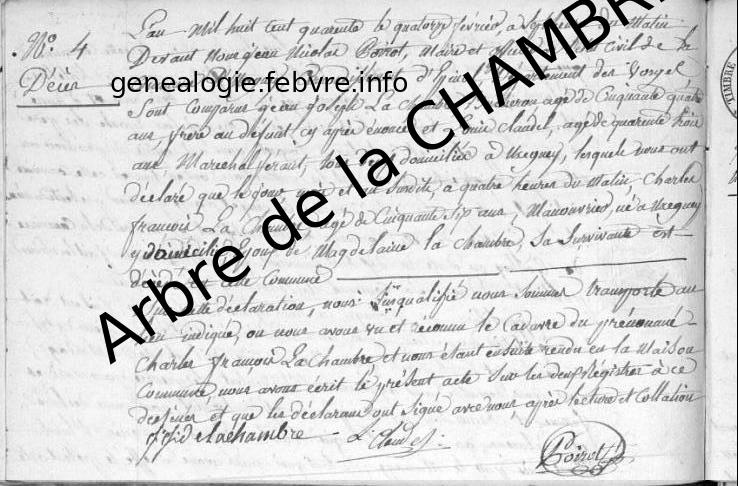 N.º 4
Décès
L'an Mil huit cent quarante le quatorze février, à sept heures du Matin
Devant Nous Jean Nicolas Poirot, Maire et civil de la
genealogie.febvre.info
département des Vosges
Sont Comparus Jean Joseph La Chambre, vigneron agé de Cinquante quatre
ans, frère au défunt, cy après énoncé et Claudel, agé de quarante trois
ans, Marechal ferant, tous deux domiciliés à Uxegney, lesquels nous ont
déclaré que le jour, et an Susdits, à quatre heures du Matin, Charles
françois La Chambre agé de Cinquante Six ans, Manouvrier, né à Uxegney
y domicilié Epoux de Magdelaine la Chambre, Sa Survivante est
décédé en cette Commune
Arbre de la CHAMBRE
déclaration, nous Susqualifié nous Sommes transporté au
lieu indiqué, ou nous avons vu et reconnu le Cadavre du prénommé
Charles françois La Chambre et nous étant ensuite rendu en la Maison
Commune nous avons écrit le présent acte Sur les deux Registres à ce
destinés et que les déclarans ont Signé avec nous, après lecture et Collation
delachambre
Claudel
Poirot
TIMBRE